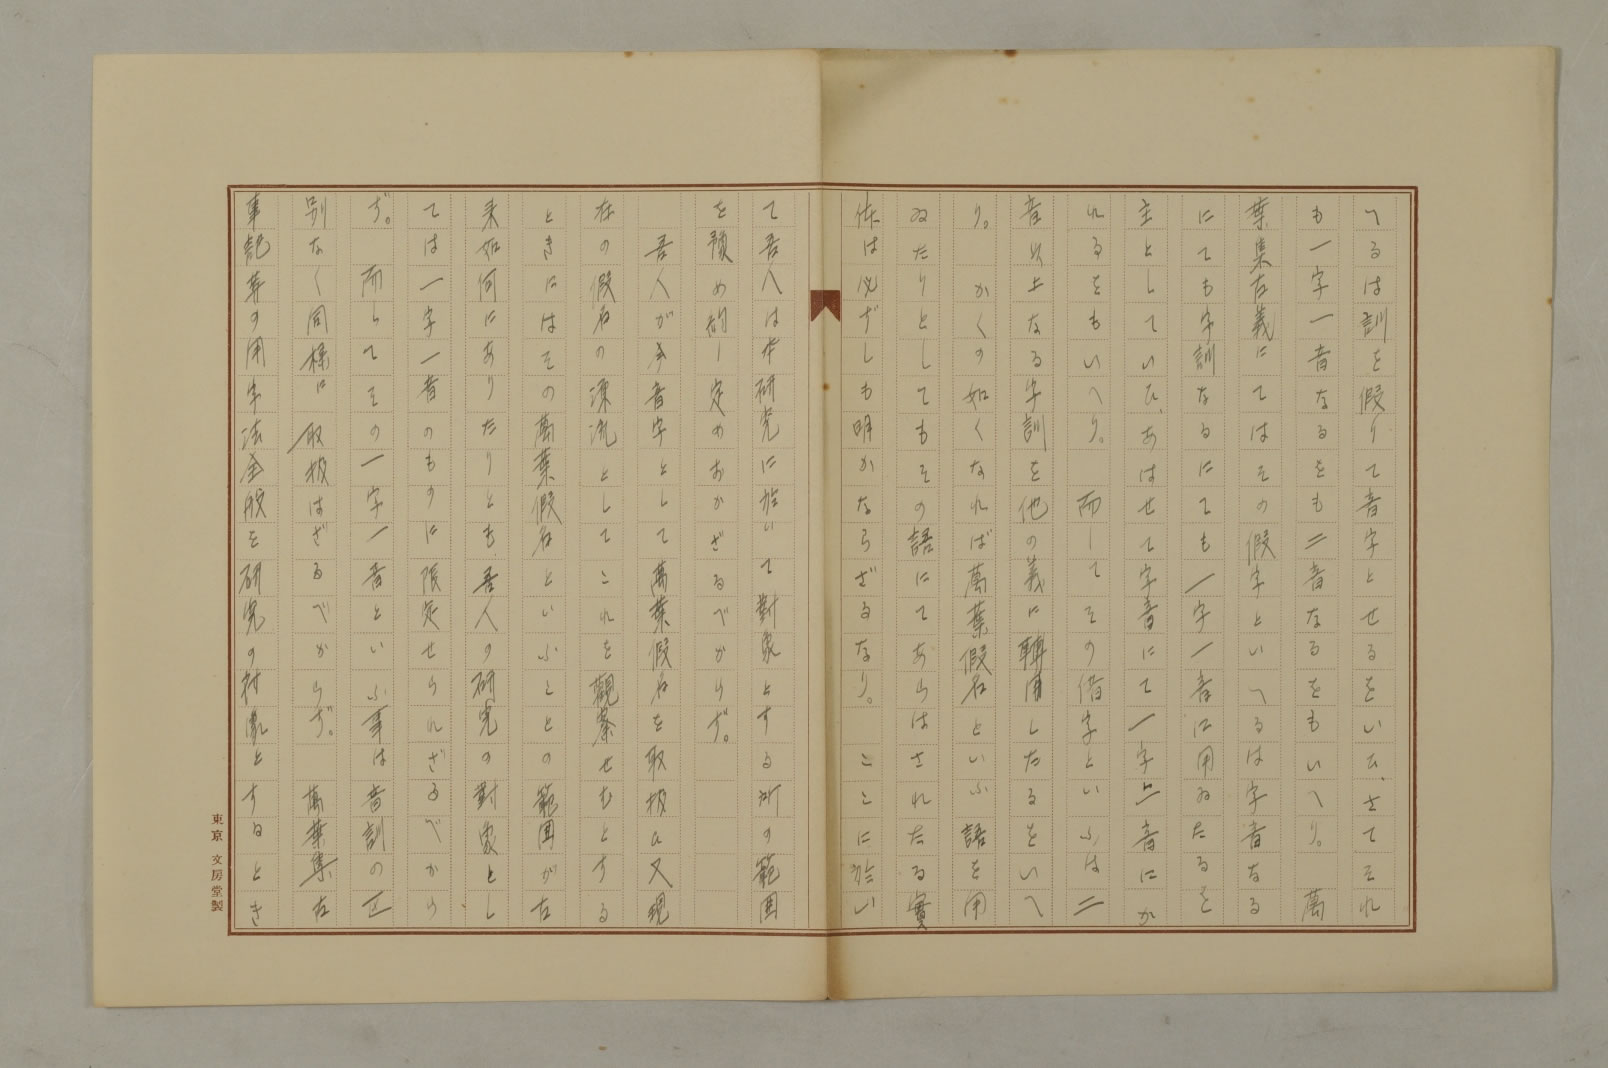 へるは訓を假りて音字とせるをいひ、さてそれ
も一字一音なるをも二音なるをもいへり。　萬
葉集古義にてはその假字といへるは字音なる
にても字訓なるにても一字一音に用ゐたるを
主としていひ、あはせて字音にて一字二音にか
れるをもいへり。　而してその借字といふは二
音以上なる字訓を他の義に轉用したるをいへ
り。　かくの如くなれば萬葉假名といふ語を用
ゐたりとしてもその語にてあらはされたる實
体は必ずしも明かならざるなり。　ここに於い
て吾人は本研究に於いて對象とする所の範囲
を豫め劃一定めおかざるべからず。
吾人が今音字として萬葉假名を取扱ひ又現
在の假名の源流としてこれを觀察せむとする
ときにはその萬葉假名といふことの範囲が古
来如何にありたりとも、吾人の研究の對象とし
ては一字一音のものに限定せられざるべから
ず。　而してその一字一音といふ事は音訓の区
別なく同樣に取扱はざるべからず。　萬葉集古
事記等の用字法全般を研究の対象とするとき
東京　文房堂製